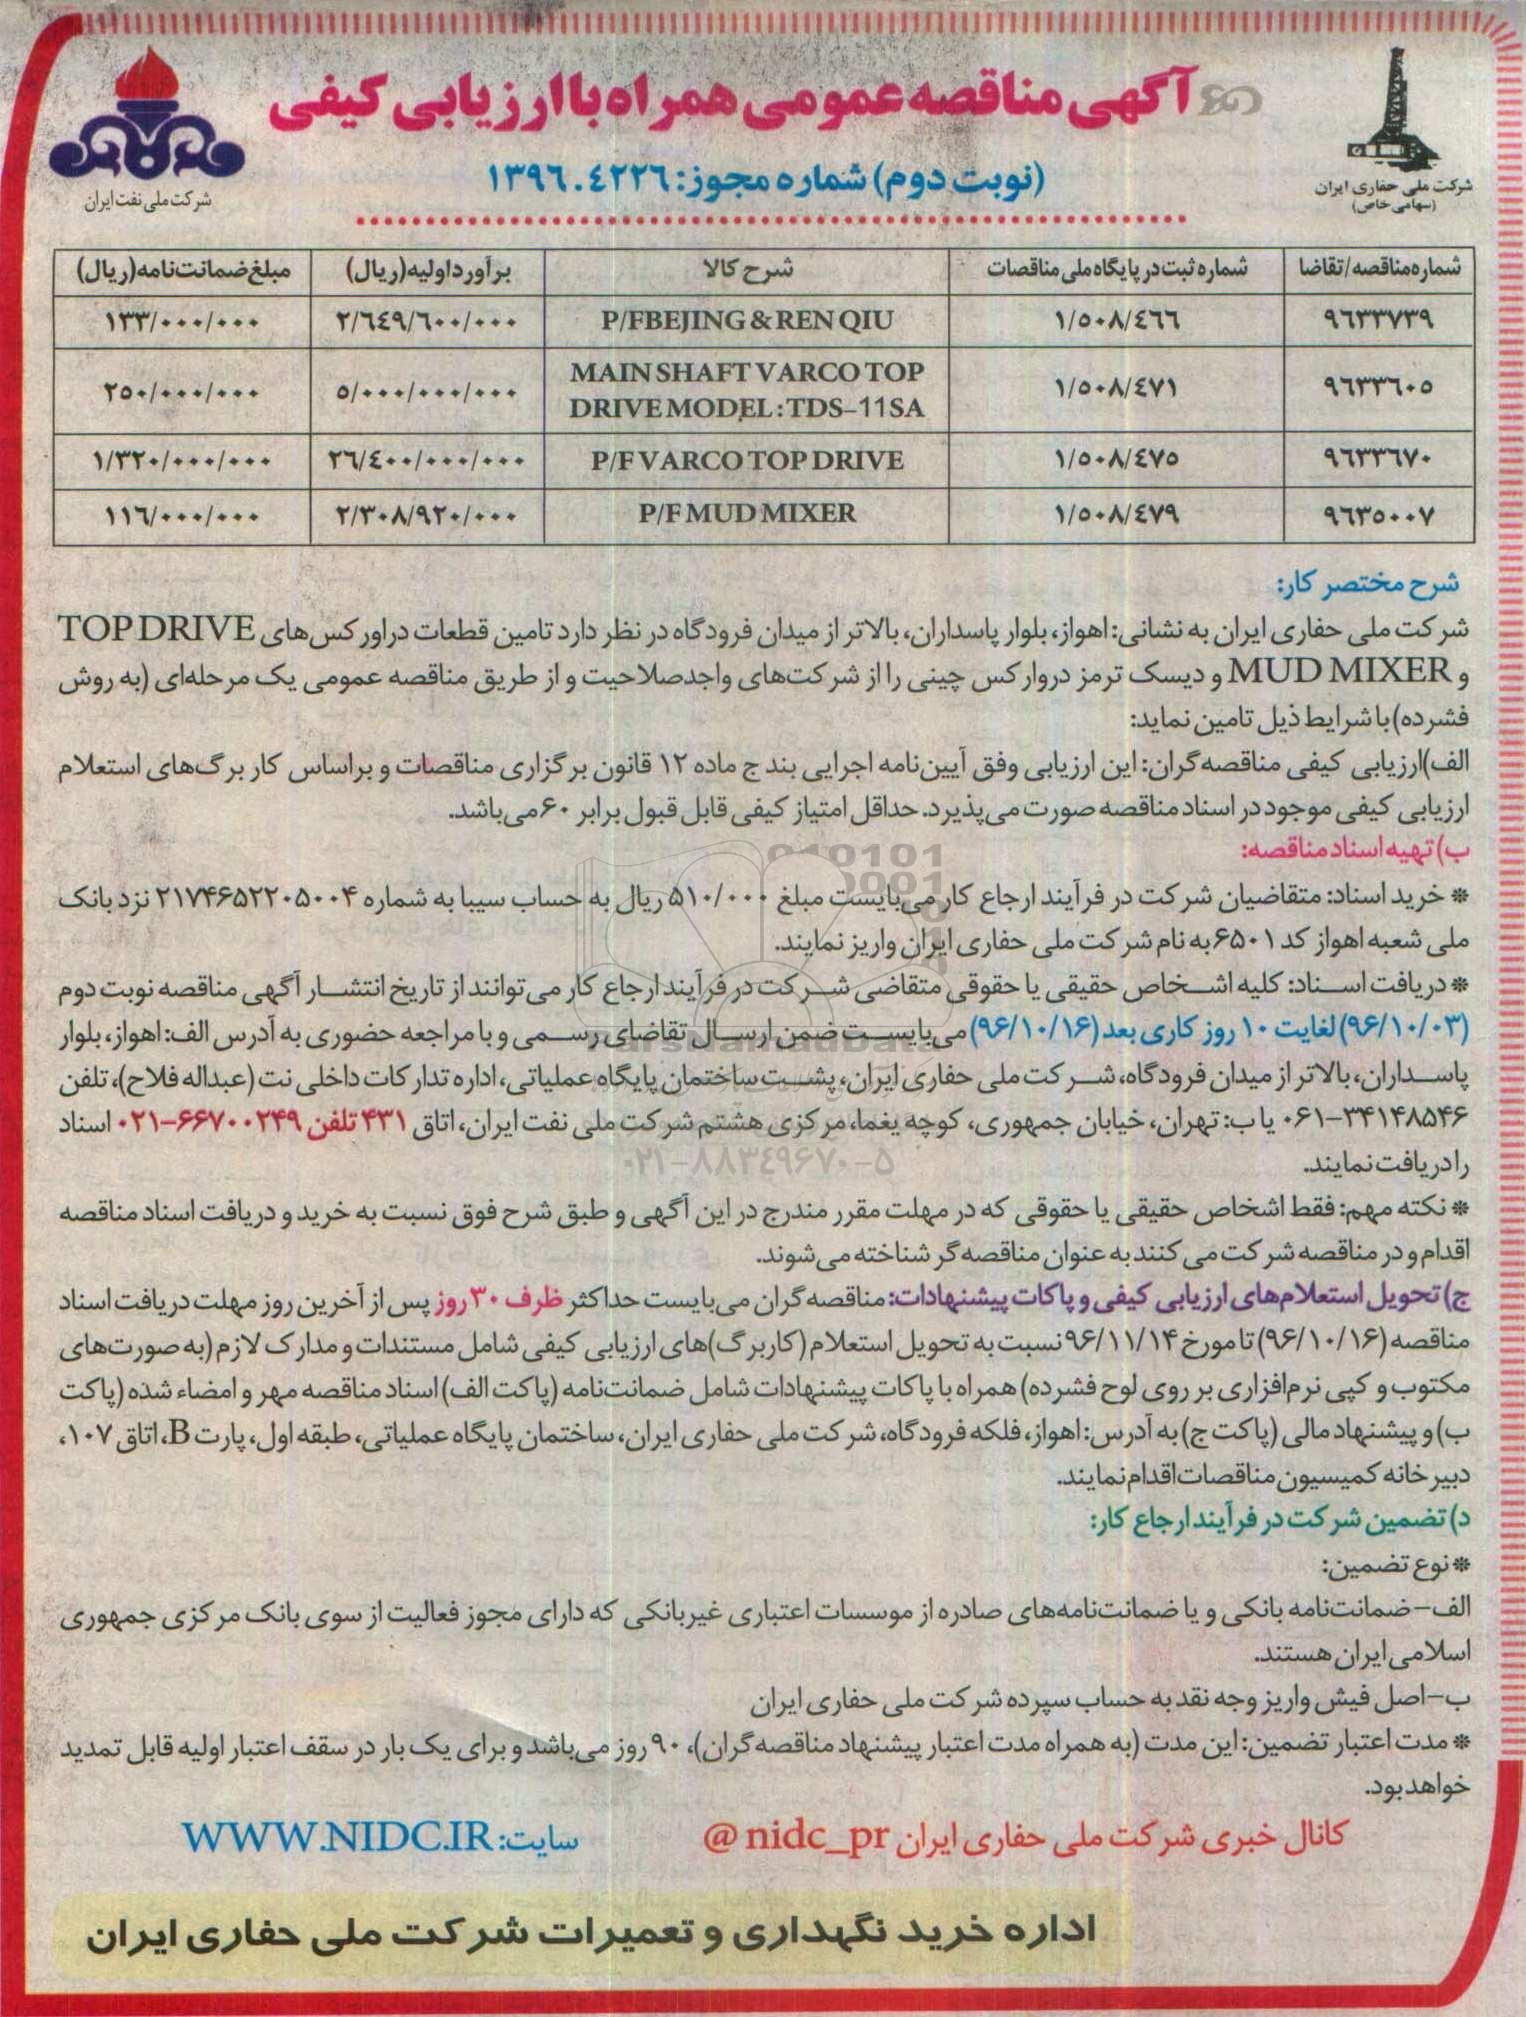 آگهی مناقصه عمومی همراه با ارزیابی کیفی
(نوبت دوم) شماره مجوز: ۱۳۹۶.۴۲۲۶
شرکت ملی حفاری ایران
(سهامی خاص)
شرکت ملی نفت ایران
شماره مناقصه/تقاضا	شماره ثبت در پایگاه ملی مناقصات	شرح کالا	برآورد اولیه(ریال)	مبلغ ضمانت‌نامه(ریال)
۹۶۳۳۷۳۹	۱/۵۰۸/۴۶۶	P/FBEJING & REN QIU	۲/۶۴۹/۶۰۰/۰۰۰	۱۳۳/۰۰۰/۰۰۰
۹۶۳۳۶۰۵	۱/۵۰۸/۴۷۱	MAIN SHAFT VARCO TOP DRIVE MODEL : TDS-11SA	۵/۰۰۰/۰۰۰/۰۰۰	۲۵۰/۰۰۰/۰۰۰
۹۶۳۳۶۷۰	۱/۵۰۸/۴۷۵	P/F VARCO TOP DRIVE	۲۶/۴۰۰/۰۰۰/۰۰۰	۱/۳۲۰/۰۰۰/۰۰۰
۹۶۳۵۰۰۷	۱/۵۰۸/۴۷۹	P/F MUD MIXER	۲/۳۰۸/۹۲۰/۰۰۰	۱۱۶/۰۰۰/۰۰۰
شرح مختصر کار:
شرکت ملی حفاری ایران به نشانی: اهواز، بلوار پاسداران، بالاتر از میدان فرودگاه در نظر دارد تامین قطعات دراورکس‌های TOP DRIVE
و MUD MIXER و دیسک ترمز دروارکس چینی را از شرکت‌های واجدصلاحیت و از طریق مناقصه عمومی یک مرحله‌ای (به روش
فشرده) با شرایط ذیل تامین نماید:
الف)ارزیابی کیفی مناقصه‌گران: این ارزیابی وفق آیین‌نامه اجرایی بند ج ماده ۱۲ قانون برگزاری مناقصات و براساس کاربرگ‌های استعلام
ارزیابی کیفی موجود در اسناد مناقصه صورت می‌پذیرد. حداقل امتیاز کیفی قابل قبول برابر ۶۰ می‌باشد.
ب) تهیه اسناد مناقصه:
* خرید اسناد: متقاضیان شرکت در فرآیند ارجاع کار می‌بایست مبلغ ۵۱۰/۰۰۰ ریال به حساب سیبا به شماره ۲۱۷۴۶۵۲۲۰۵۰۰۴ نزد بانک
ملی شعبه اهواز کد ۶۵۰۱ به نام شرکت ملی حفاری ایران واریز نمایند.
* دریافت اسناد: کلیه اشخاص حقیقی یا حقوقی متقاضی شرکت در فرآیند ارجاع کار می‌توانند از تاریخ انتشار آگهی مناقصه نوبت دوم
(۹۶/۱۰/۰۳) لغایت ۱۰ روز کاری بعد (۹۶/۱۰/۱۶) می‌بایست ضمن ارسال تقاضای رسمی و با مراجعه حضوری به آدرس الف: اهواز، بلوار
پاسداران، بالاتر از میدان فرودگاه، شرکت ملی حفاری ایران، پشت ساختمان پایگاه عملیاتی، اداره تدارکات داخلی نت (عبداله فلاح)، تلفن
۳۴۱۴۸۵۴۶-۰۶۱ یا ب: تهران، خیابان جمهوری، کوچه یغما، مرکزی هشتم شرکت ملی نفت ایران، اتاق ۴۳۱ تلفن ۶۶۷۰۰۲۴۹-۰۲۱ اسناد
را دریافت نمایند.
۰۲۱-۸۸۳۴۹۶۷۰-۵
* نکته مهم: فقط اشخاص حقیقی یا حقوقی که در مهلت مقرر مندرج در این آگهی و طبق شرح فوق نسبت به خرید و دریافت اسناد مناقصه
اقدام و در مناقصه شرکت می‌کنند به عنوان مناقصه‌گر شناخته می‌شوند.
ج) تحویل استعلام‌های ارزیابی کیفی و پاکات پیشنهادات: مناقصه‌گران می‌بایست حداکثر ظرف ۳۰ روز پس از آخرین روز مهلت دریافت اسناد
مناقصه (۹۶/۱۰/۱۶) تا مورخ ۹۶/۱۱/۱۴ نسبت به تحویل استعلام (کاربرگ)های ارزیابی کیفی شامل مستندات و مدارک لازم (به صورت‌های
مکتوب و کپی نرم‌افزاری بر روی لوح فشرده) همراه با پاکات پیشنهادات شامل ضمانت‌نامه (پاکت الف) اسناد مناقصه مهر و امضاء شده (پاکت
ب) و پیشنهاد مالی (پاکت ج) به آدرس: اهواز، فلکه فرودگاه، شرکت ملی حفاری ایران، ساختمان پایگاه عملیاتی، طبقه اول، پارت B، اتاق ۱۰۷،
دبیرخانه کمیسیون مناقصات اقدام نمایند.
د) تضمین شرکت در فرآیند ارجاع کار:
* نوع تضمین:
الف- ضمانت‌نامه بانکی و یا ضمانت‌نامه‌های صادره از موسسات اعتباری غیربانکی که دارای مجوز فعالیت از سوی بانک مرکزی جمهوری
اسلامی ایران هستند.
ب- اصل فیش واریز وجه نقد به حساب سپرده شرکت ملی حفاری ایران
* مدت اعتبار تضمین: این مدت (به همراه مدت اعتبار پیشنهاد مناقصه‌گران)، ۹۰ روز می‌باشد و برای یک بار در سقف اعتبار اولیه قابل تمدید
خواهد بود.
کانال خبری شرکت ملی حفاری ایران @nidc_pr
سایت: WWW.NIDC.IR
اداره خرید نگهداری و تعمیرات شرکت ملی حفاری ایران